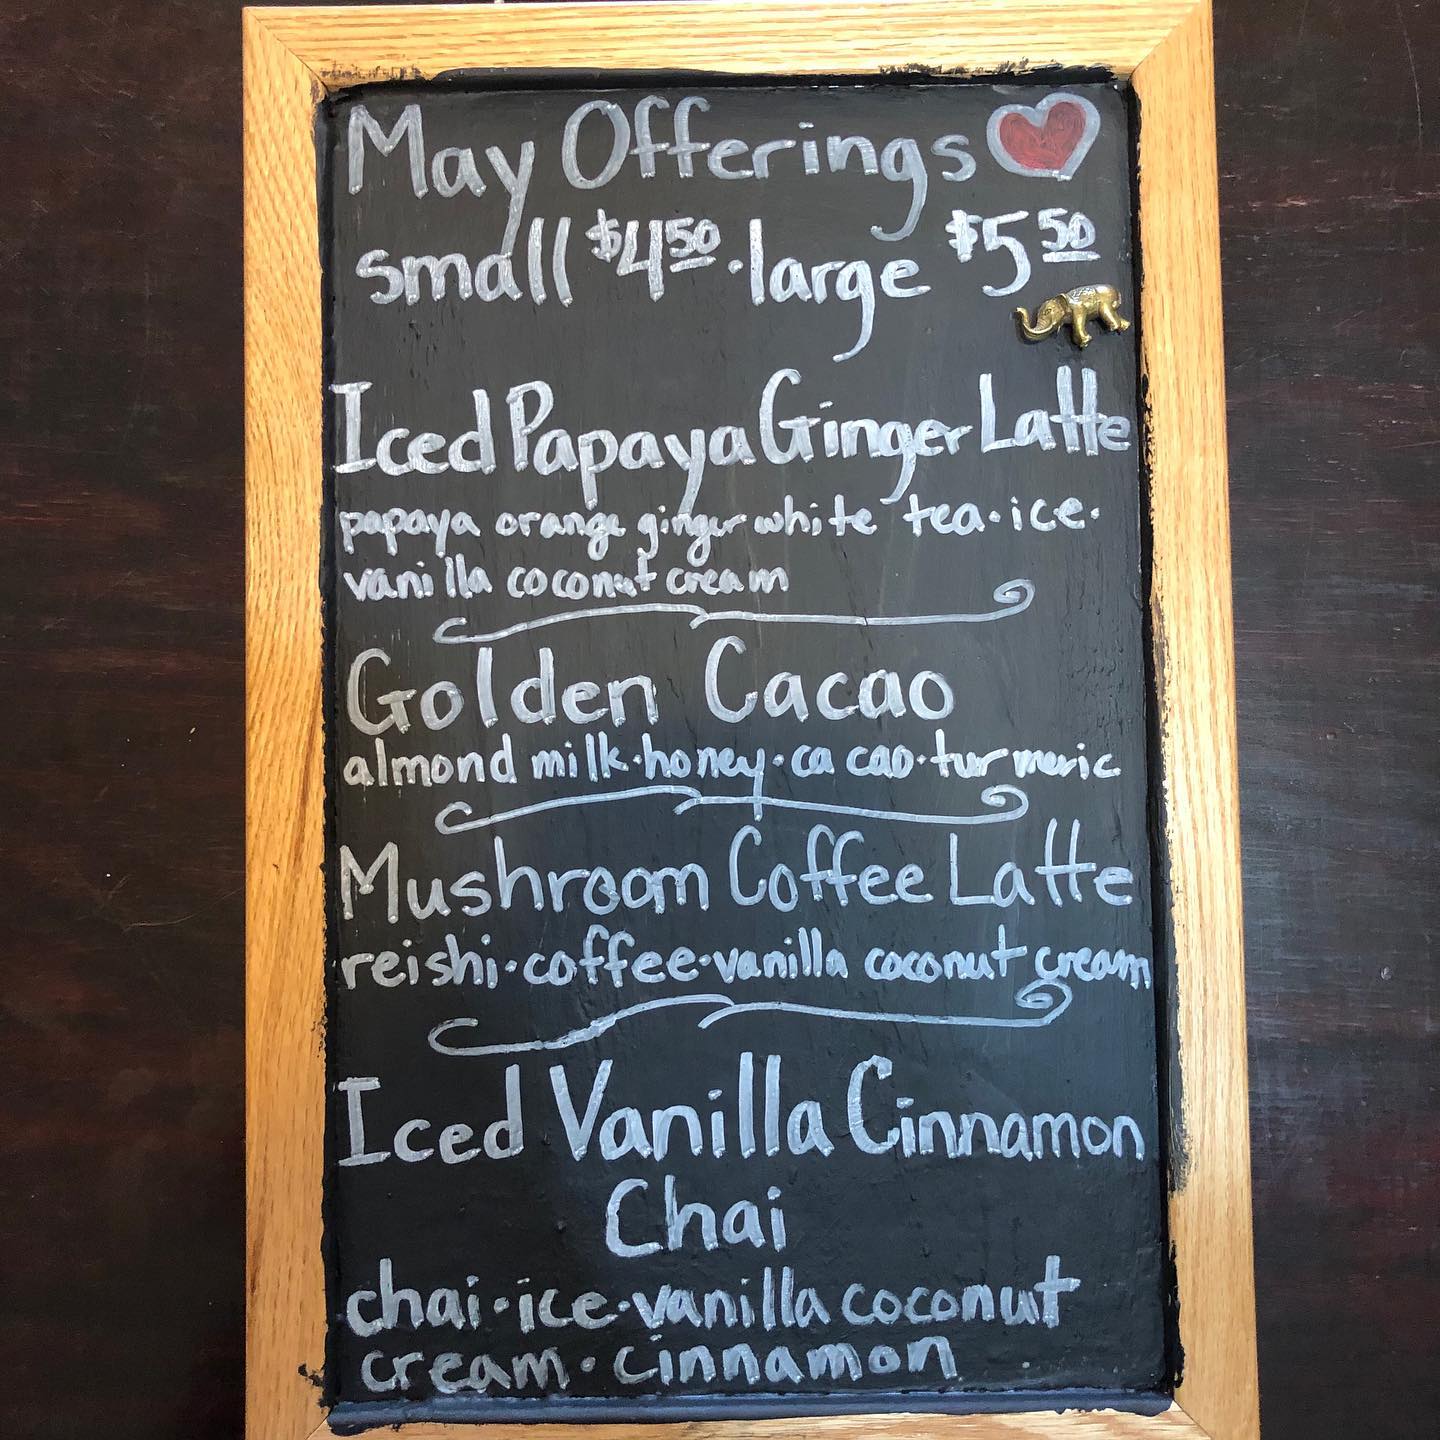 May Offerings
small $4.50 · large $5.50
Iced Papaya Ginger Latte
papaya orange ginger white tea · ice ·
vanilla coconut cream
Golden Cacao
almond milk · honey · cacao · turmeric
Mushroom Coffee Latte
reishi · coffee · vanilla coconut cream
Iced Vanilla Cinnamon
Chai
chai · ice · vanilla coconut
cream · cinnamon